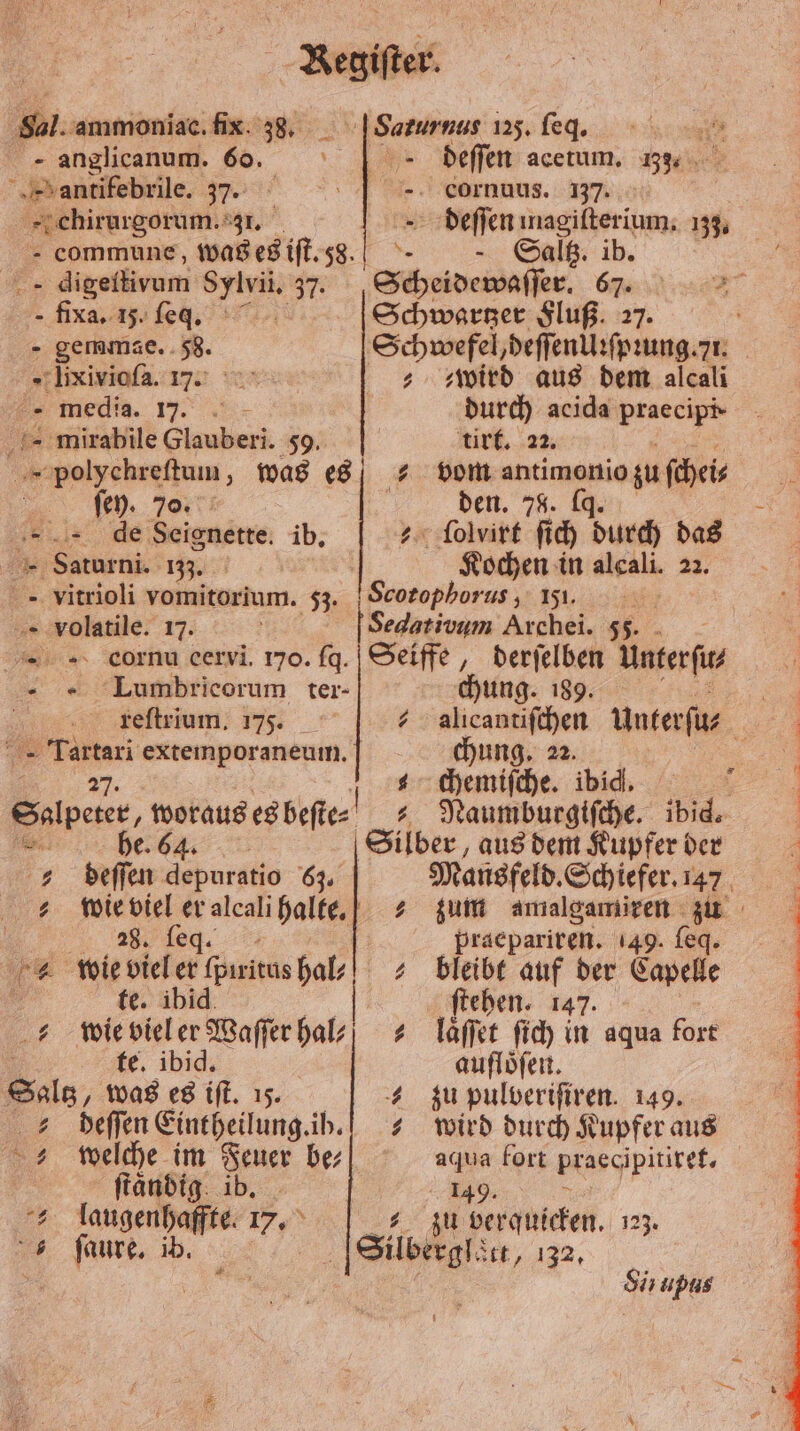 Regiſter.
Sal. ammoniac. fix. 38.
- anglicanum. 60.
- antifebrile. 37.
- chirurgorum. 31.
- commune, was es iſt. 58.
- digeſtivum Sylvii. 37.
- fixa. 15. ſeq.
- gemmae. 58.
- lixivioſa. 17.
- media. 17.
- mirabile Glauberi. 59.
- polychreſtum, was es
ſey. 70.
- - de Seignette. ib.
- Saturni. 133.
- vitrioli vomitorium. 53.
- volatile. 17.
- - cornu cervi. 170. ſq.
- - Lumbricorum ter-
reſtrium. 175.
- Tartari extemporaneum.
27.
Salpeter, woraus es beſte⸗
he. 64.
⸗ deſſen depuratio 63.
⸗ wie viel er alcali halte.
28. ſeq.
⸗ wie viel er ſpiritus hal⸗
te. ibid
⸗ wie viel er Waſſer hal⸗
te. ibid.
Saltz, was es iſt. 15.
⸗ deſſen Eintheilung. ib.
⸗ welche im Feuer be⸗
ſtändig. ib.
⸗ laugenhaffte. 17.
⸗ ſaure. ib.
Saturnus 125. ſeq.
- deſſen acetum. 133.
- cornuus. 137.
- deſſen magiſterium. 133.
- - Saltz. ib.
Scheidewaſſer. 67.
Schwartzer Fluß. 27.
Schwefel, deſſen Urſprung. 71.
⸗ ⸗wird aus dem alcali
durch acida praecipi-
tirt. 22.
⸗ vom antimonio zu ſchei⸗
den. 78. ſq.
⸗ ſolvirt ſich durch das
Kochen in alcali. 22.
Scotophorus, 151.
Sedativum Archei. 55.
Seiffe, derſelben Unterſu⸗
chung. 189.
⸗ alicantiſchen Unterſu⸗
chung. 22.
⸗ chemiſche. ibid.
⸗ Naumburgiſche. ibid.
Silber, aus dem Kupfer der
Mansfeld. Schiefer. 147
⸗ zum amalgamiren zu
praepariren. 149. ſeq.
⸗ bleibt auf der Capelle
ſtehen. 147.
⸗ läſſet ſich in aqua fort
auflöſen.
⸗ zu pulveriſiren. 149.
⸗ wird durch Kupfer aus
aqua fort praecipitiret.
149.
⸗ zu verquicken. 123.
Silberglätt, 132.
Sirupus